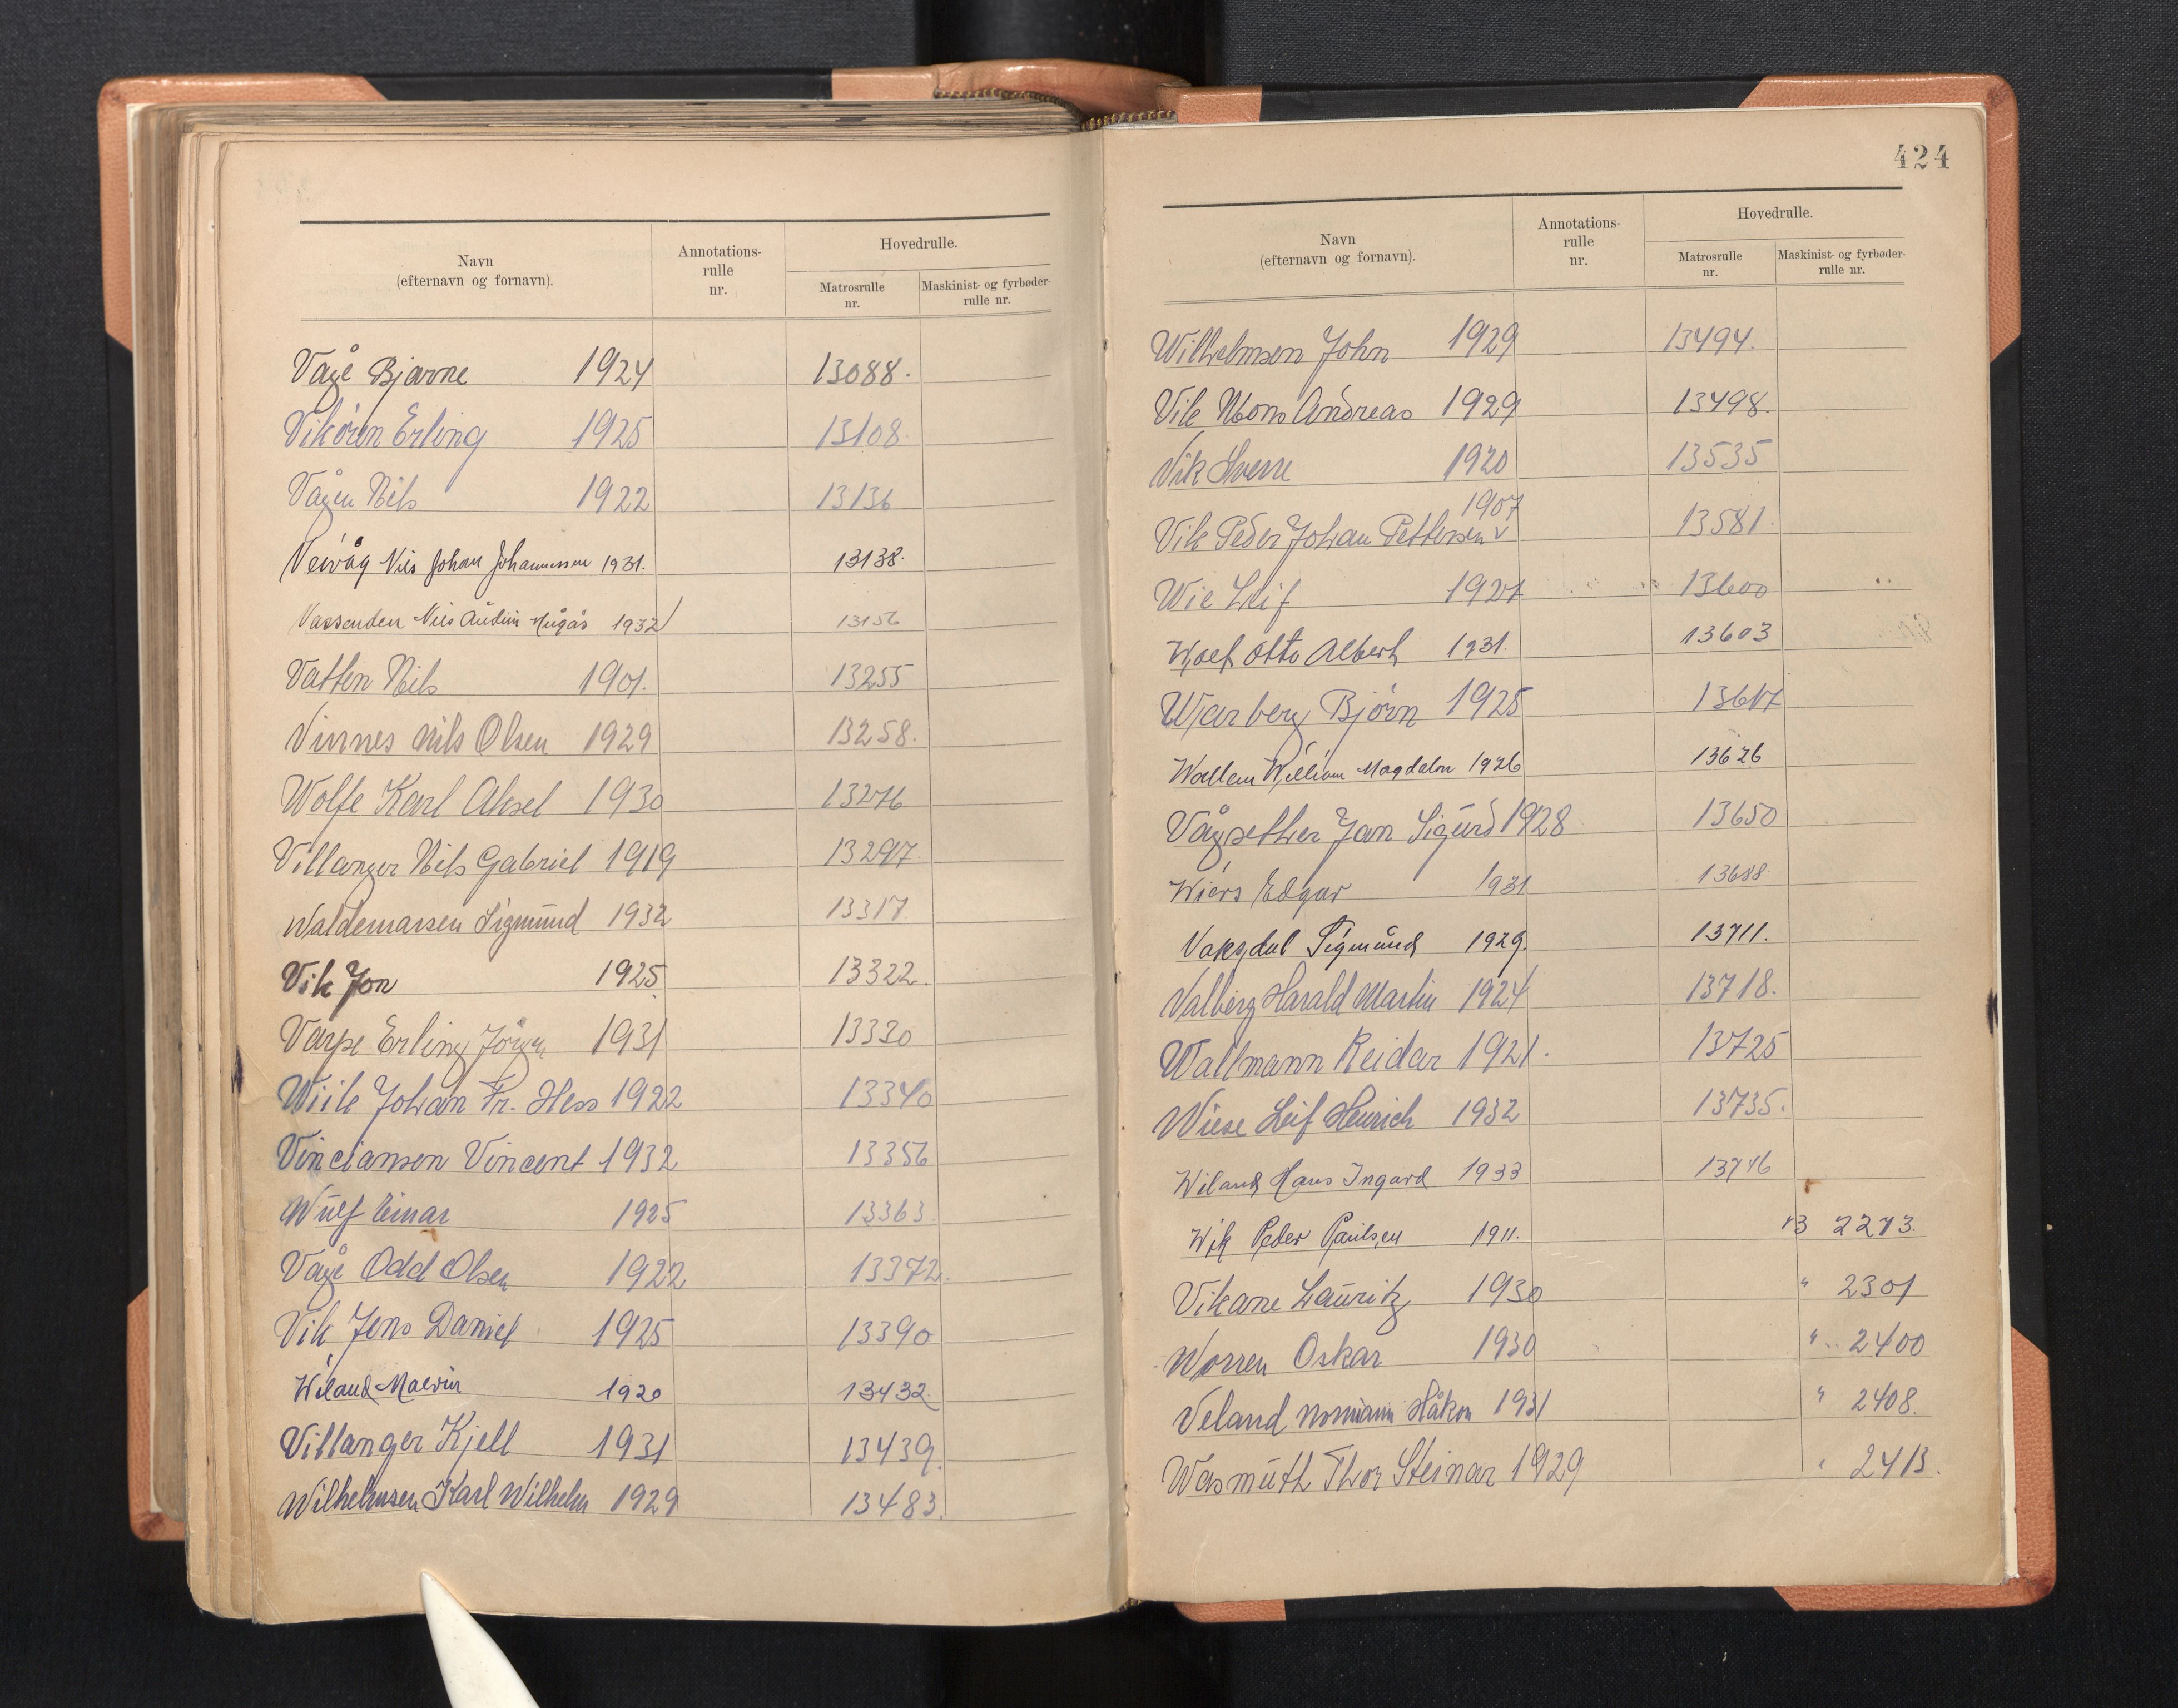 Navn
(efternavn og fornavn).
Annotations-
rulle
nr.
Hovedrulle.
Matrosrulle
nr.
Maskinist- og fyrbøder-
rulle nr.
Våge Bjarne 1924 13088.
Vikören Erling 1925 13108.
Vågen Nils 1922 13136
Veivåg Nils Johan Johannessen 1931. 13138.
Vassenden Nils Audun 1932 13156
Vatten Nils 1901. 13255
Vinnes Nils Olsen 1929 13258.
Wolfe Karl Aksel 1930 13276
Villanger Nils Gabriel 1919 13297
Waldemarsen Sigmund 1932 13317.
Vik Jon 1925 13322.
Varpe Erling 1931 13330
Wiik Johan Fr. Hess 1922 13340
Vinciansen Vincent 1932 13356
Wulf Einar 1925 13363.
Våge Odd Olsen 1922 13372.
Vik Jens Daniel 1925 13390
Wiland Malvin 1920 13432.
Villanger Kjell 1931 13439.
Wilhelmsen Karl Wilhelm 1929 13483.
424
Navn
(efternavn og fornavn).
Annotations-
rulle
nr.
Hovedrulle.
Matrosrulle
nr.
Maskinist- og fyrbøder-
rulle nr.
Wilhelmsen John 1929 13494.
Vik Mons Andreas 1929 13498.
Vik Sverre 1920 13535
1907
Vik Peder Johan Pettersen v 13581.
Wie Leif 1921 13600
Otto Albert 1931. 13603
Warberg Bjørn 1925 13617
Wallem William Magdalon 1926 13626
Vågsether Jan Sigurd 1928 13650
Wiers Edgar 1931 13688
Vaksdal Sigmund 1929. 13711.
Valberg Harald Martin 1924 13718.
Wallmann Reidar 1921. 13725
Wiese Leif Henrich 1932 13735.
Wiland Hans Ingard 1933 13746
Wik Peder Paulsen 1911. 13 2273.
Vikane Lauritz 1930 " 2301
Worren Oskar 1930 " 2400
Veland Normann Håkon 1931 " 2408.
Wasmuth Thor Steinar 1929 " 2413.